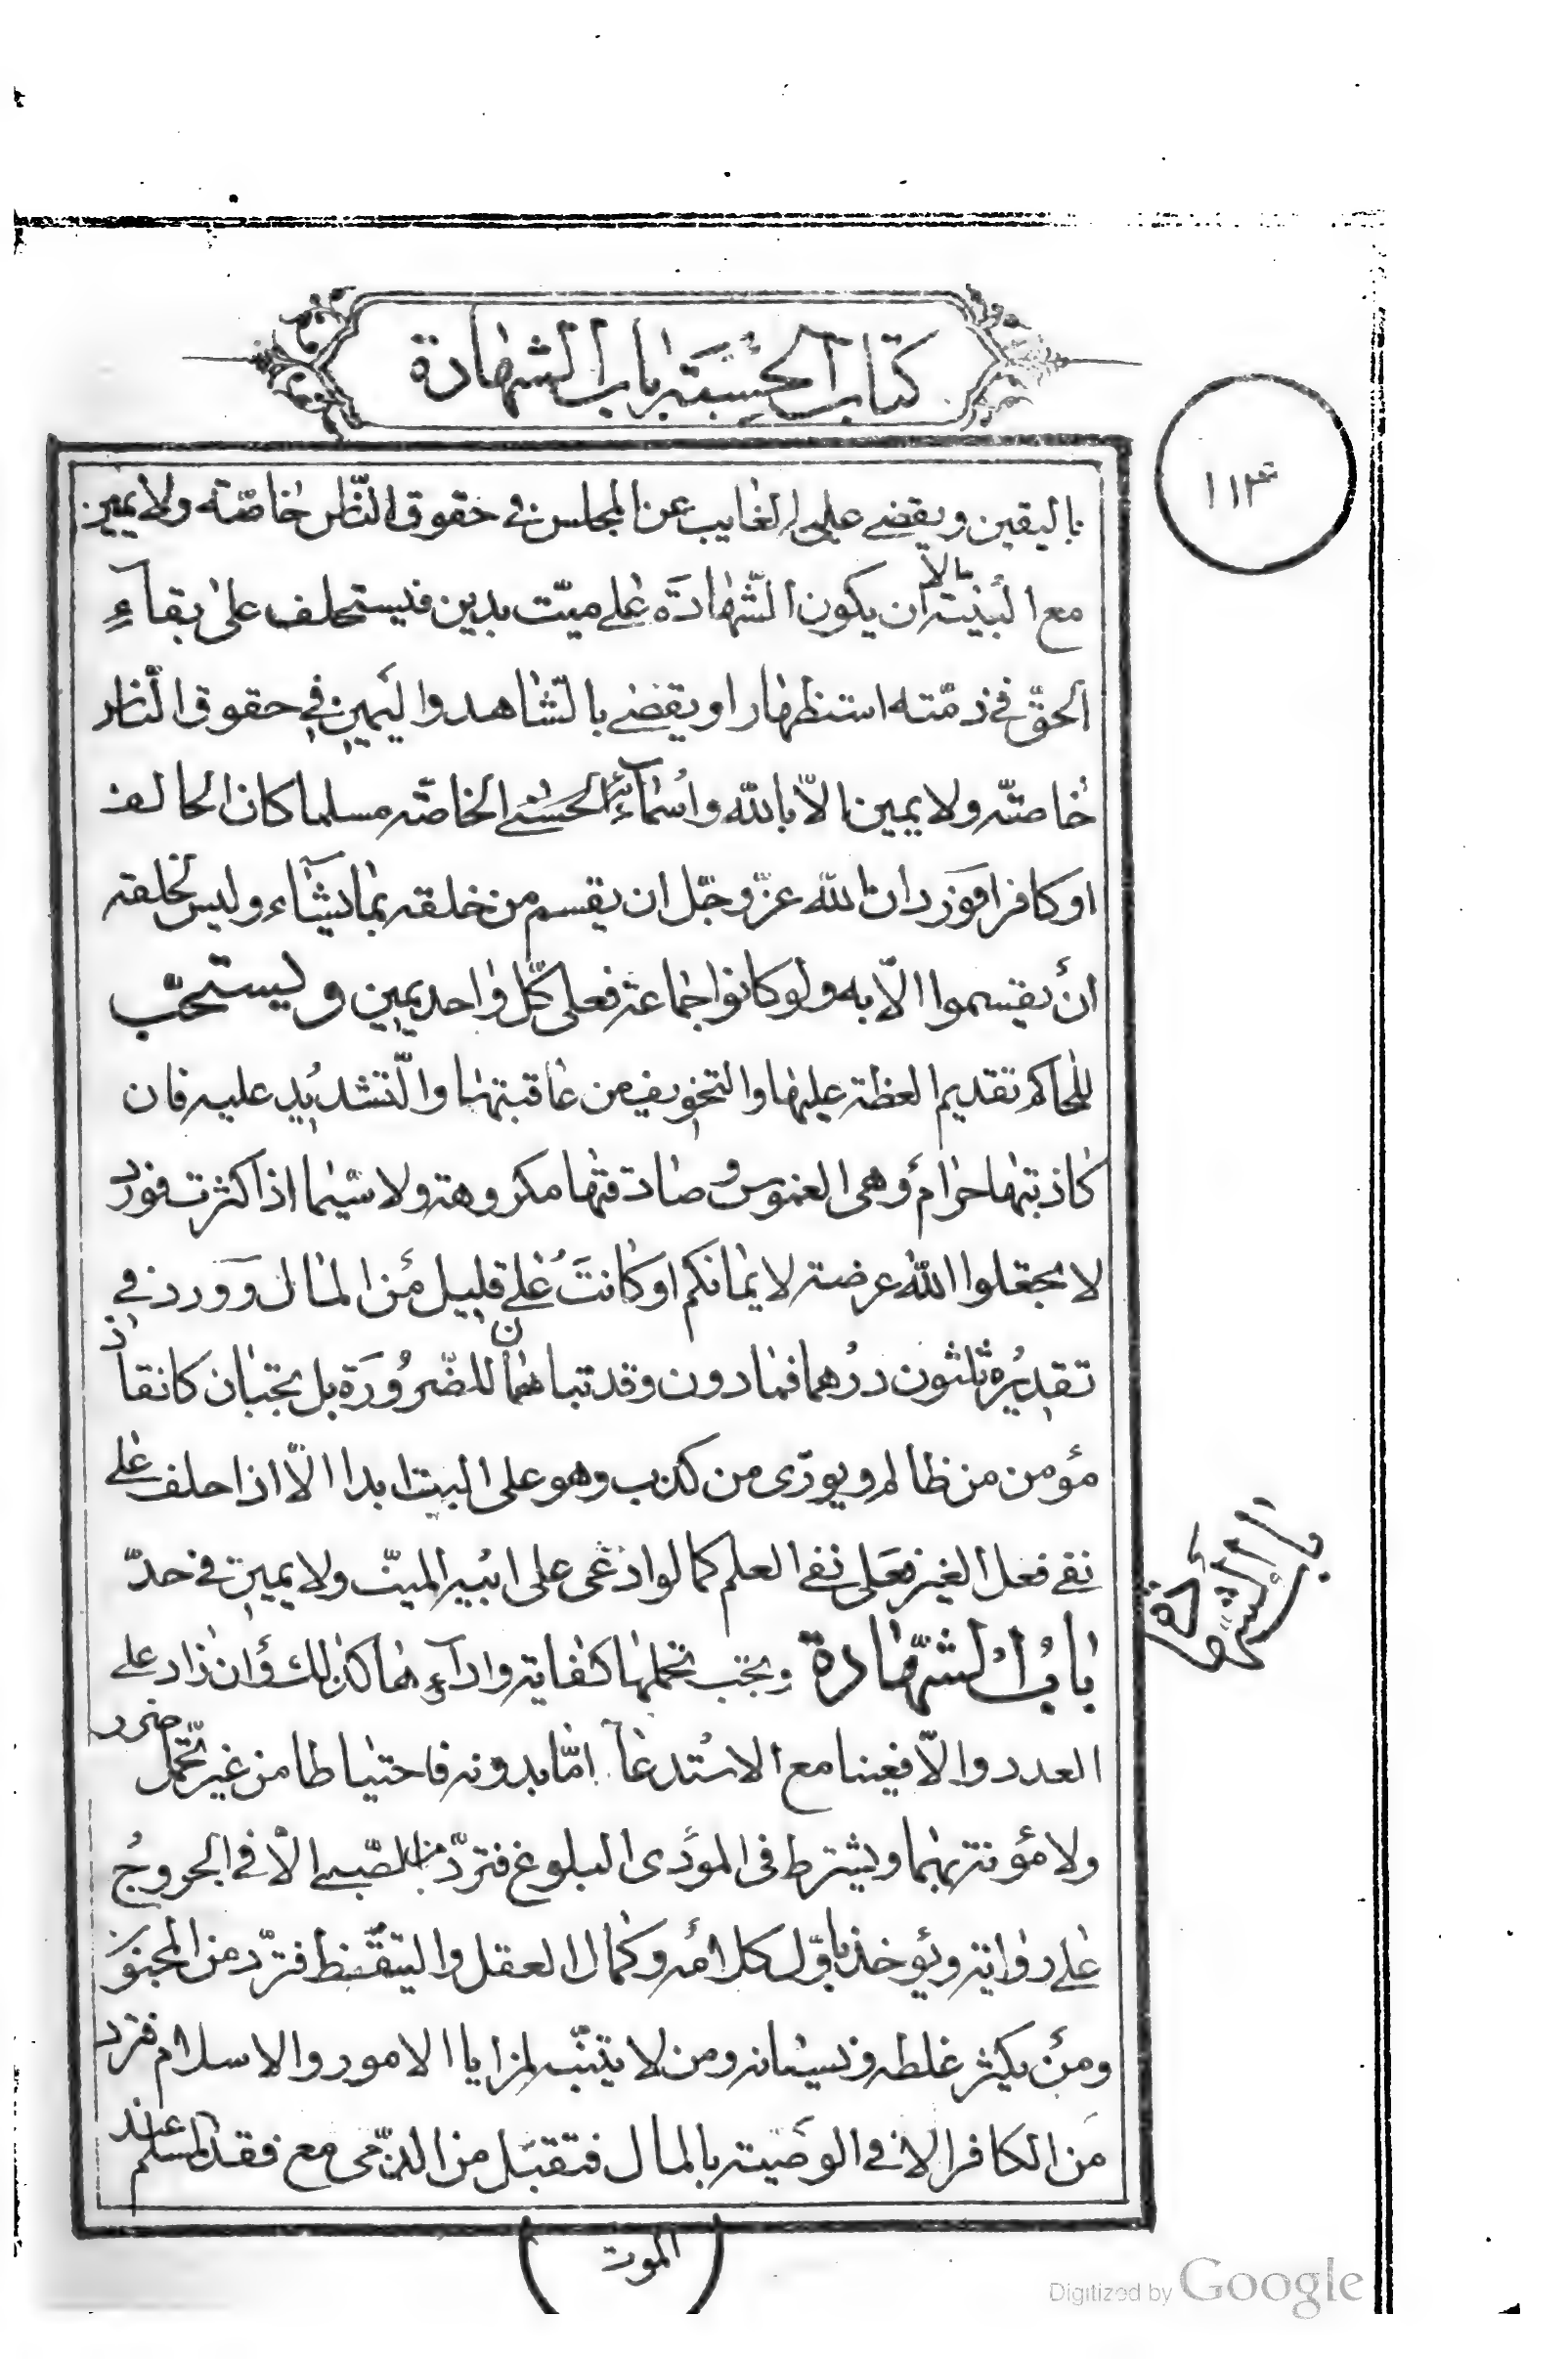 كتاب الحسبة باب الشهادة
١١٣
باليقين ويقضى على الغايب عن المجلس فى حقوق النّاس خاصّة ولا يمين
مع البيّنة الا ان يكون الشّهادة على ميّت بدين فيستحلف على بقآء
الحقّ فى ذمّته استظهارا ويقضى بالشّاهد واليمين فى حقوق النّاس
خاصّة ولا يمين الاّ بالله واسمآئه الحسنى الخاصّة مسلما كان الحالف
او كافرا فورد ان لله عزّ وجلّ ان يقسم من خلقه بما يشآء وليس لخلقه
ان يقسموا الاّ به ولو كانوا جماعة فعلى كلّ واحد يمين ويستحبّ
للحاكم تقديم العظة عليها والتخويف من عاقبتها والتّشديد عليه فان
كاذبتها حرام وهى الغموس وصادقتها مكروهة ولا سيّما اذا كثرت فورد
لا تجعلوا الله عرضة لايمانكم او كانت على قليل من المال وورد فى
تقديره ثلثون درهما فما دون وقد تباحان للضّرورة بل تجبان كانقاذ
مؤمن من ظالم ويورّى من كذب وهو على البت ابدا الاّ اذا حلف على
نفى فعل الغير فعلى نفى العلم كما لو ادعى على ابيه الميّت ولا يمين فى حدّ
باب الشّهادة ويجب تحملها كفاية واداءها كذلك وان زاد على
العدد والاّ فعينا مع الاستدعآء امّا بدونه فاحتياطا من غير تحمّل ضرر
ولا مؤنة بهما ويشترط فى المؤدى البلوغ فتردّ من الصّبى الاّ فى الجروح
على رواية ويؤخذ باوّل كلامه وكمال العقل والتيقّظ فتردّ من المجنون
ومن يكثر غلطه ونسيانه ومن لا يتنبّه لمزايا الامور والاسلام فترد
من الكافر الا فى الوصيّة بالمال فتقبل من الذّمى مع فقد المسلم عند
باب الشهادة
الموت
Digitized by Google